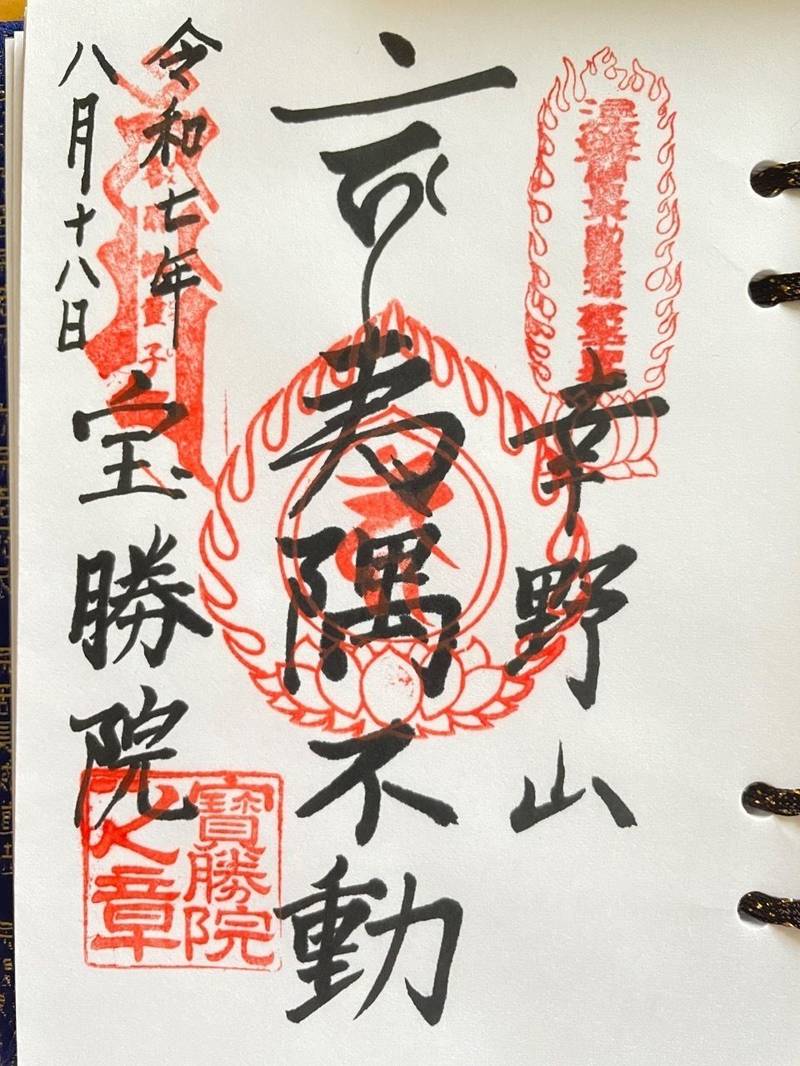 幸野山
夷隅不動
令和七年
八月十八日
宝勝院
寶勝院
之章